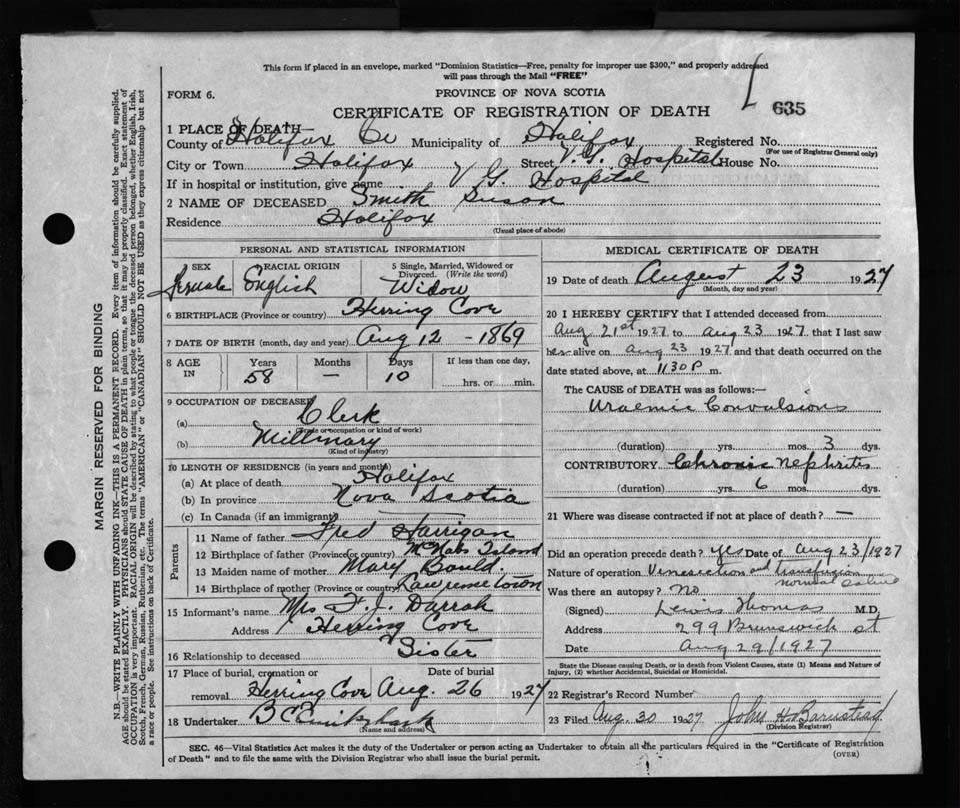 This form if placed in an envelope, marked "Dominion Statistics—Free, penalty for improper use $300," and properly addressed
will pass through the Mail "FREE"
FORM 6.
PROVINCE OF NOVA SCOTIA
CERTIFICATE OF REGISTRATION OF DEATH
635
1 PLACE OF DEATH—
County of Halifax Co Municipality of Halifax Registered No.
(For use of Registrar General only)
City or Town Halifax Street V.G. Hospital House No.
If in hospital or institution, give name V G. Hospital
2 NAME OF DECEASED Smith Susan
Residence Halifax
(Usual place of abode)
PERSONAL AND STATISTICAL INFORMATION
SEX Female
RACIAL ORIGIN English
5 Single, Married, Widowed or Divorced. (Write the word) Widow
6 BIRTHPLACE (Province or country) Herring Cove
7 DATE OF BIRTH (month, day and year) Aug 12 - 1869
8 AGE IN
Years 58
Months —
Days 10
If less than one day,
hrs. or min.
9 OCCUPATION OF DECEASED
(a) Clerk
(Trade or occupation or kind of work)
(b) Millinary
(Kind of industry)
10 LENGTH OF RESIDENCE (in years and months)
(a) At place of death Halifax
(b) In province Nova Scotia
(c) In Canada (if an immigrant)
Parents
11 Name of father Fred Harrigan
12 Birthplace of father (Province or country) McNabs Island
13 Maiden name of mother Mary Bauld.
14 Birthplace of mother (Province or country) Lawrencetown
15 Informant's name Mrs F. J. Darrah
Address Herring Cove
16 Relationship to deceased Sister
17 Place of burial, cremation or removal Herring Cove
Date of burial Aug. 26 1927
18 Undertaker B C
(Name and address)
MEDICAL CERTIFICATE OF DEATH
19 Date of death August 23 1927
(Month, day and year)
20 I HEREBY CERTIFY that I attended deceased from
Aug 21st 1927 to Aug 23 1927 that I last saw
her alive on Aug 23 1927 and that death occurred on the
date stated above, at 1130 P m.
The CAUSE OF DEATH was as follows:—
Uraemic Convulsions
(duration) yrs. mos. 3 dys.
CONTRIBUTORY Chronic Nephritis
(duration) yrs. 6 mos. dys.
21 Where was disease contracted if not at place of death? —
Did an operation precede death? yes Date of Aug 23/1927
Nature of operation Venesection and transfusion
normal saline
Was there an autopsy? No
(Signed) Lewis Thomas M.D.
Address 299 Brunswick st
Date Aug 29/1927
State the Disease causing Death, or in death from Violent Causes, state (1) Means and Nature of
Injury, and (2) whether Accidental, Suicidal or Homicidal.
22 Registrar's Record Number
23 Filed Aug. 30 1927 John H Barnstead
(Division Registrar)
SEC. 46—Vital Statistics Act makes it the duty of the Undertaker or person acting as Undertaker to obtain all the particulars required in the "Certificate of Registration
of Death" and to file the same with the Division Registrar who shall issue the burial permit.
(OVER)
MARGIN RESERVED FOR BINDING
N.B.—WRITE PLAINLY WITH UNFADING INK—THIS IS A PERMANENT RECORD. Every item of information should be carefully supplied.
AGE should be stated EXACTLY. PHYSICIANS should STATE CAUSE OF DEATH in plain terms, so that it may be properly classified. Exact statement of
OCCUPATION is very important. RACIAL ORIGIN will be described by stating to what people or tongue the deceased person belonged, whether English, Irish,
Scotch, French, German, Russian, Ruthenian, etc. The terms "AMERICAN" or "CANADIAN" SHOULD NOT BE USED as they express citizenship but not
a race or people. See instructions on back of Certificate.